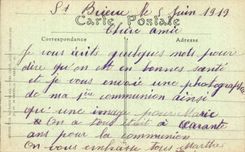 St Brieuc le 5 Juin 1919
Carte Postale
Chère amie
Correspondance
je vous écris quelques mots pour
dire qu'on est en bonnes santé
et je vous envoie une photographie
de ma 1ère communion ainsi
qu'une image pour Marie
on a tout était a
ans pour la communion
On vous embrasse tous Marthe